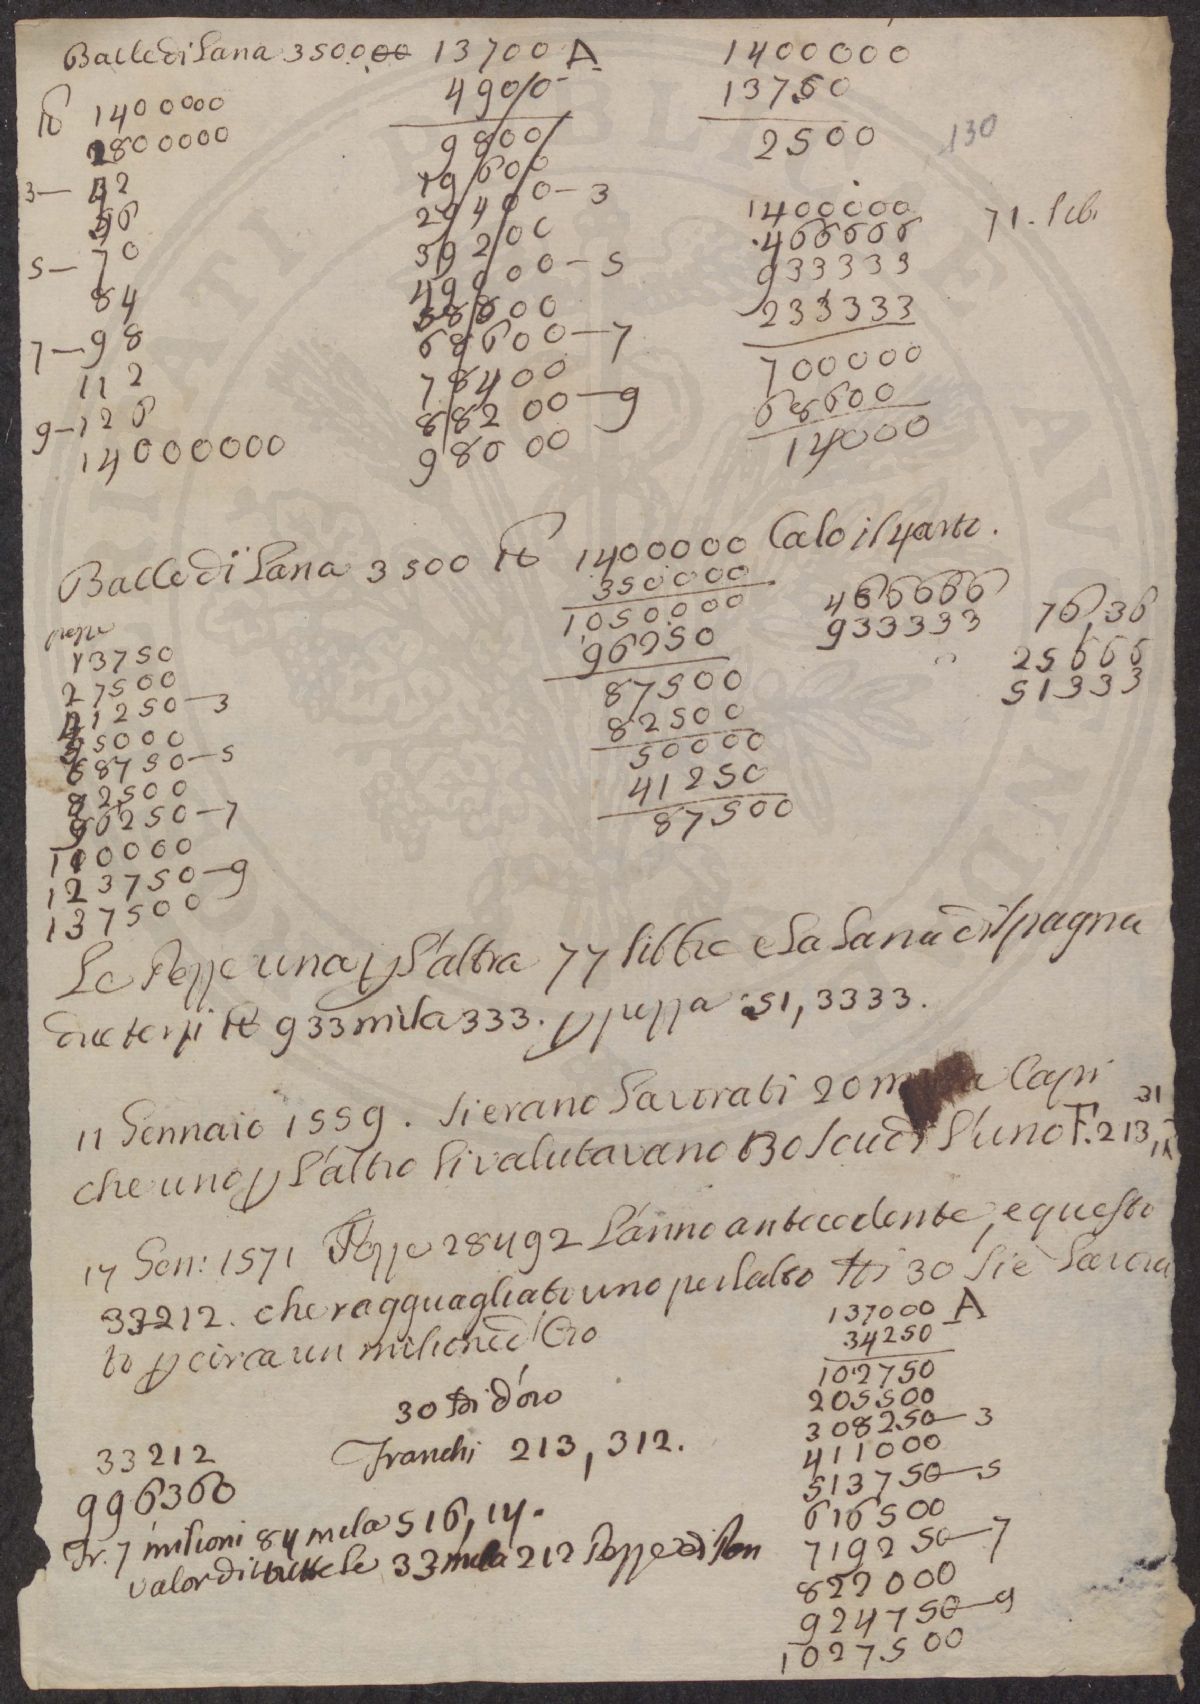 Balle di Lana 350000 13700 A
lb 1400000
2800000
3— 42
56
5— 70
84
7— 98
112
9— 126
14000000
4900
9800
19600
29400—3
39200
49000—5
58800
68600—7
78400
88200—9
98000
1400000
13750
2500
130
1400000
466666
933333
233333
700000
68600
14000
71. lib.
Balle di Lana 3500 lb 1400000 Calo il 4arto.
350000
1050000
96250
87500
82500
50000
41250
87500
466666
933333
76,36
25666
51333
pezze
13750
27500
41250—3
55000
68750—5
82500
96250—7
110000
123750—9
137500
Le Pezze una p l'altra 77 libbre e la Lana di Spagna
due terzi lb 933 mila 333. p pezza 51, 3333.
11 Gennaio 1559. Si erano Lavorati 20 Capi
che uno p l'altro si valutavano 30 scudi l'uno F. 213,
31
17 Gen: 1571 Pezze 28492 l'anno antecedente, e questo
33212. che ragguagliato uno per l'altro 30 si è Lavora
to p circa un milione d'Oro
30 d'oro
Franchi 213, 312.
33212
996360
Fr. 7 milioni 84 mila 516, 14.
valor di tutte le 33 mila 212 Pezze di Pan
137000 A
34250
102750
205500
308250—3
411000
513750—5
616500
719250—7
822000
924750—9
1027500